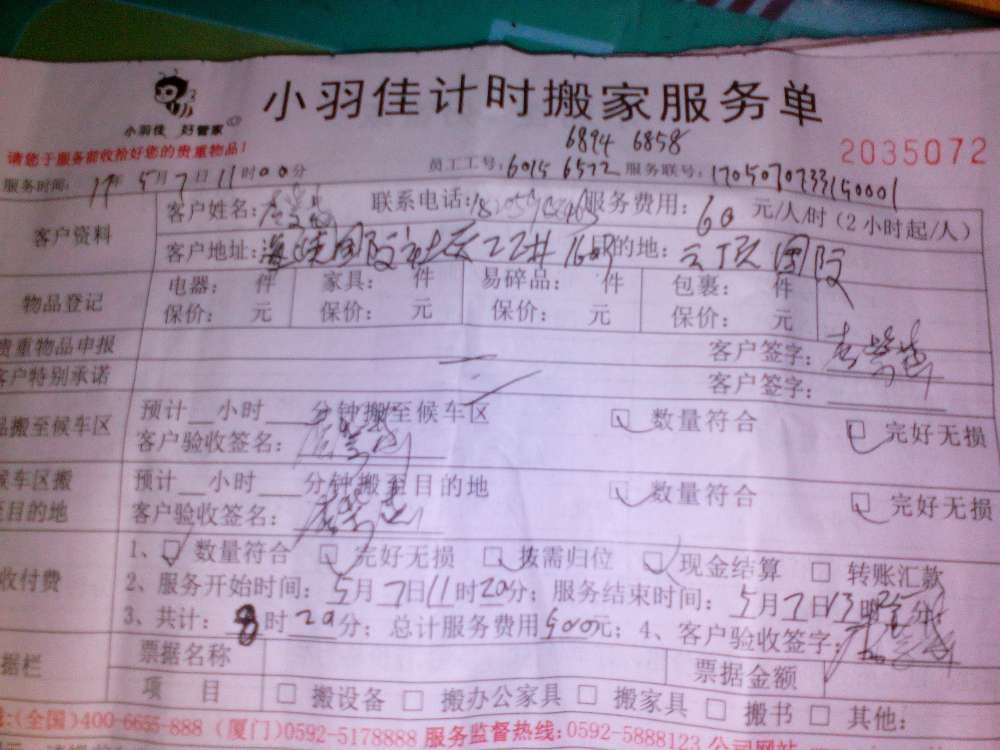 小羽佳计时搬家服务单
小羽佳 好管家
6894 6858
2035072
请您于服务前收拾好您的贵重物品!
服务时间: 17年5月7日11时00分 员工工号: 6015 6572 服务联号:
客户资料 客户姓名: 联系电话: 服务费用: 60 元/人/时 (2小时起/人)
客户地址: 的地: 云顶国际
物品登记 电器: 件 家具: 件 易碎品: 件 包裹: 件
保价: 元 保价: 元 保价: 元 保价: 元
贵重物品申报 客户签字:
客户特别承诺 客户签字:
品搬至候车区 预计__小时___分钟搬至候车区 数量符合 完好无损
客户验收签名:
候车区搬 预计__小时___分钟搬至目的地 数量符合 完好无损
至目的地 客户验收签名:
收付费 1、数量符合 完好无损 按需归位 现金结算 转账汇款
2、服务开始时间: 5月7日11时20分; 服务结束时间: 5月7日13时25分;
3、共计: 8时20分; 总计服务费用500元; 4、客户验收签字:
据栏 票据名称 票据金额
项 目 搬设备 搬办公家具 搬家具 搬书 其他:
(全国)400-6655-888 (厦门)0592-5178888 服务监督热线: 0592-5888123 公司网站